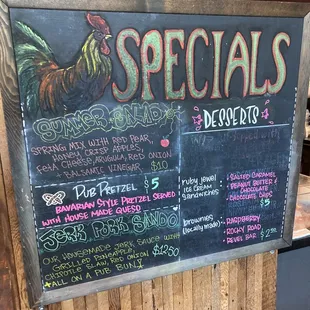 SPECIALS
SUMMER SALAD
SPRING MIX WITH RED PEAR,
HONEY CRISP APPLES,
FETA CHEESE, ARUGULA, RED ONION
BALSAMIC VINEGAR $10
PUB PRETZEL $5
BAVARIAN STYLE PRETZEL SERVED
WITH HOUSE MADE QUESO
JERK PORK SANDO
OUR HOUSEMADE JERK SAUCE WITH
GRILLED PINEAPPLE,
CHIPOTLE SLAW, RED ONION $12.50
ALL ON A PUB BUN!
DESSERTS
ruby jewel
ICE CREAM
SANDWICHES
SALTED CARAMEL
PEANUT BUTTER &
CHOCOLATE
CHOCOLATE CHIP
$5
brownies
(locally made)
RASPBERRY
ROCKY ROAD
REVEL BAR